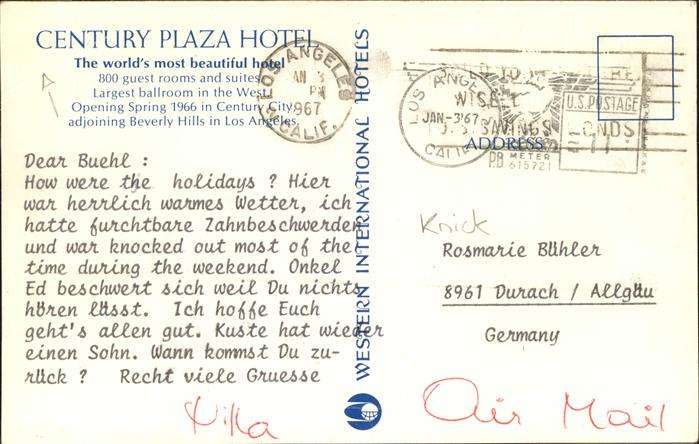 CENTURY PLAZA HOTEL
The world's most beautiful hotel
800 guest rooms and suites
Largest ballroom in the West
Opening Spring 1966 in Century City
adjoining Beverly Hills in Los Angeles
LOS ANGELES
PM
1967
CALIF.
WESTERN INTERNATIONAL HOTELS
LOS ANGELES
JAN-3'67
CALIF
U.S. POSTAGE
PB METER
615721
ADDRESS
Dear Buehl :
How were the holidays ? Hier
war herrlich warmes Wetter, ich
hatte furchtbare Zahnbeschwerden
und war knocked out most of the
time during the weekend. Onkel
Ed beschwert sich weil Du nichts
hören lässt. Ich hoffe Euch
geht's allen gut. Kuste hat wieder
einen Sohn. Wann kommst Du zu-
rück ? Recht viele Gruesse
Knick
Rosmarie Bühler
8961 Durach / Allgäu
Germany
Air Mail